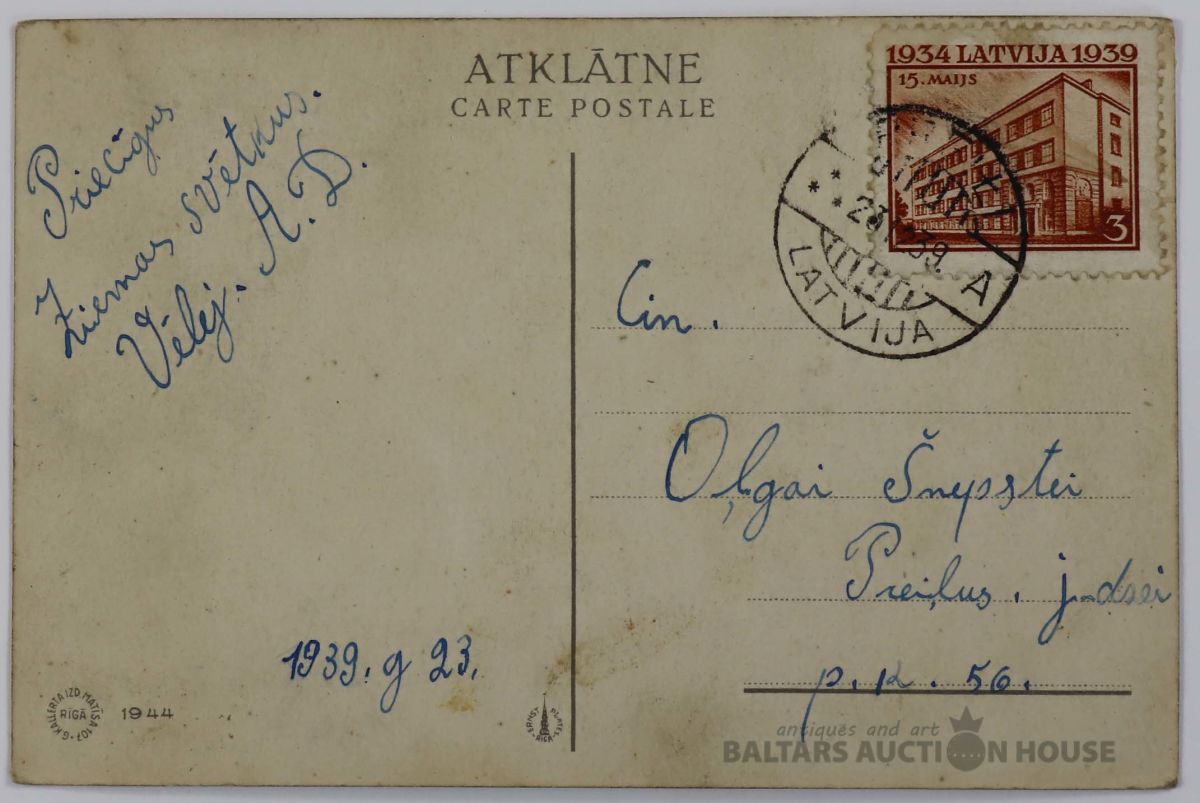 ATKLĀTNE
CARTE POSTALE
1934 LATVIJA 1939
15. MAIJS
3
LATVIJA
A
Priecīgus
Ziemas svētkus.
Vēlēj. A. D.
Cin.
Oļgai Šnepstei
j-dzei
p. k. 56.
1939. g 23.
G. KALLERTA IZD. MATĪSA 107
RĪGĀ
1944
ERNST PLATES
RĪGĀ
antiques and art
BALTARS AUCTION HOUSE